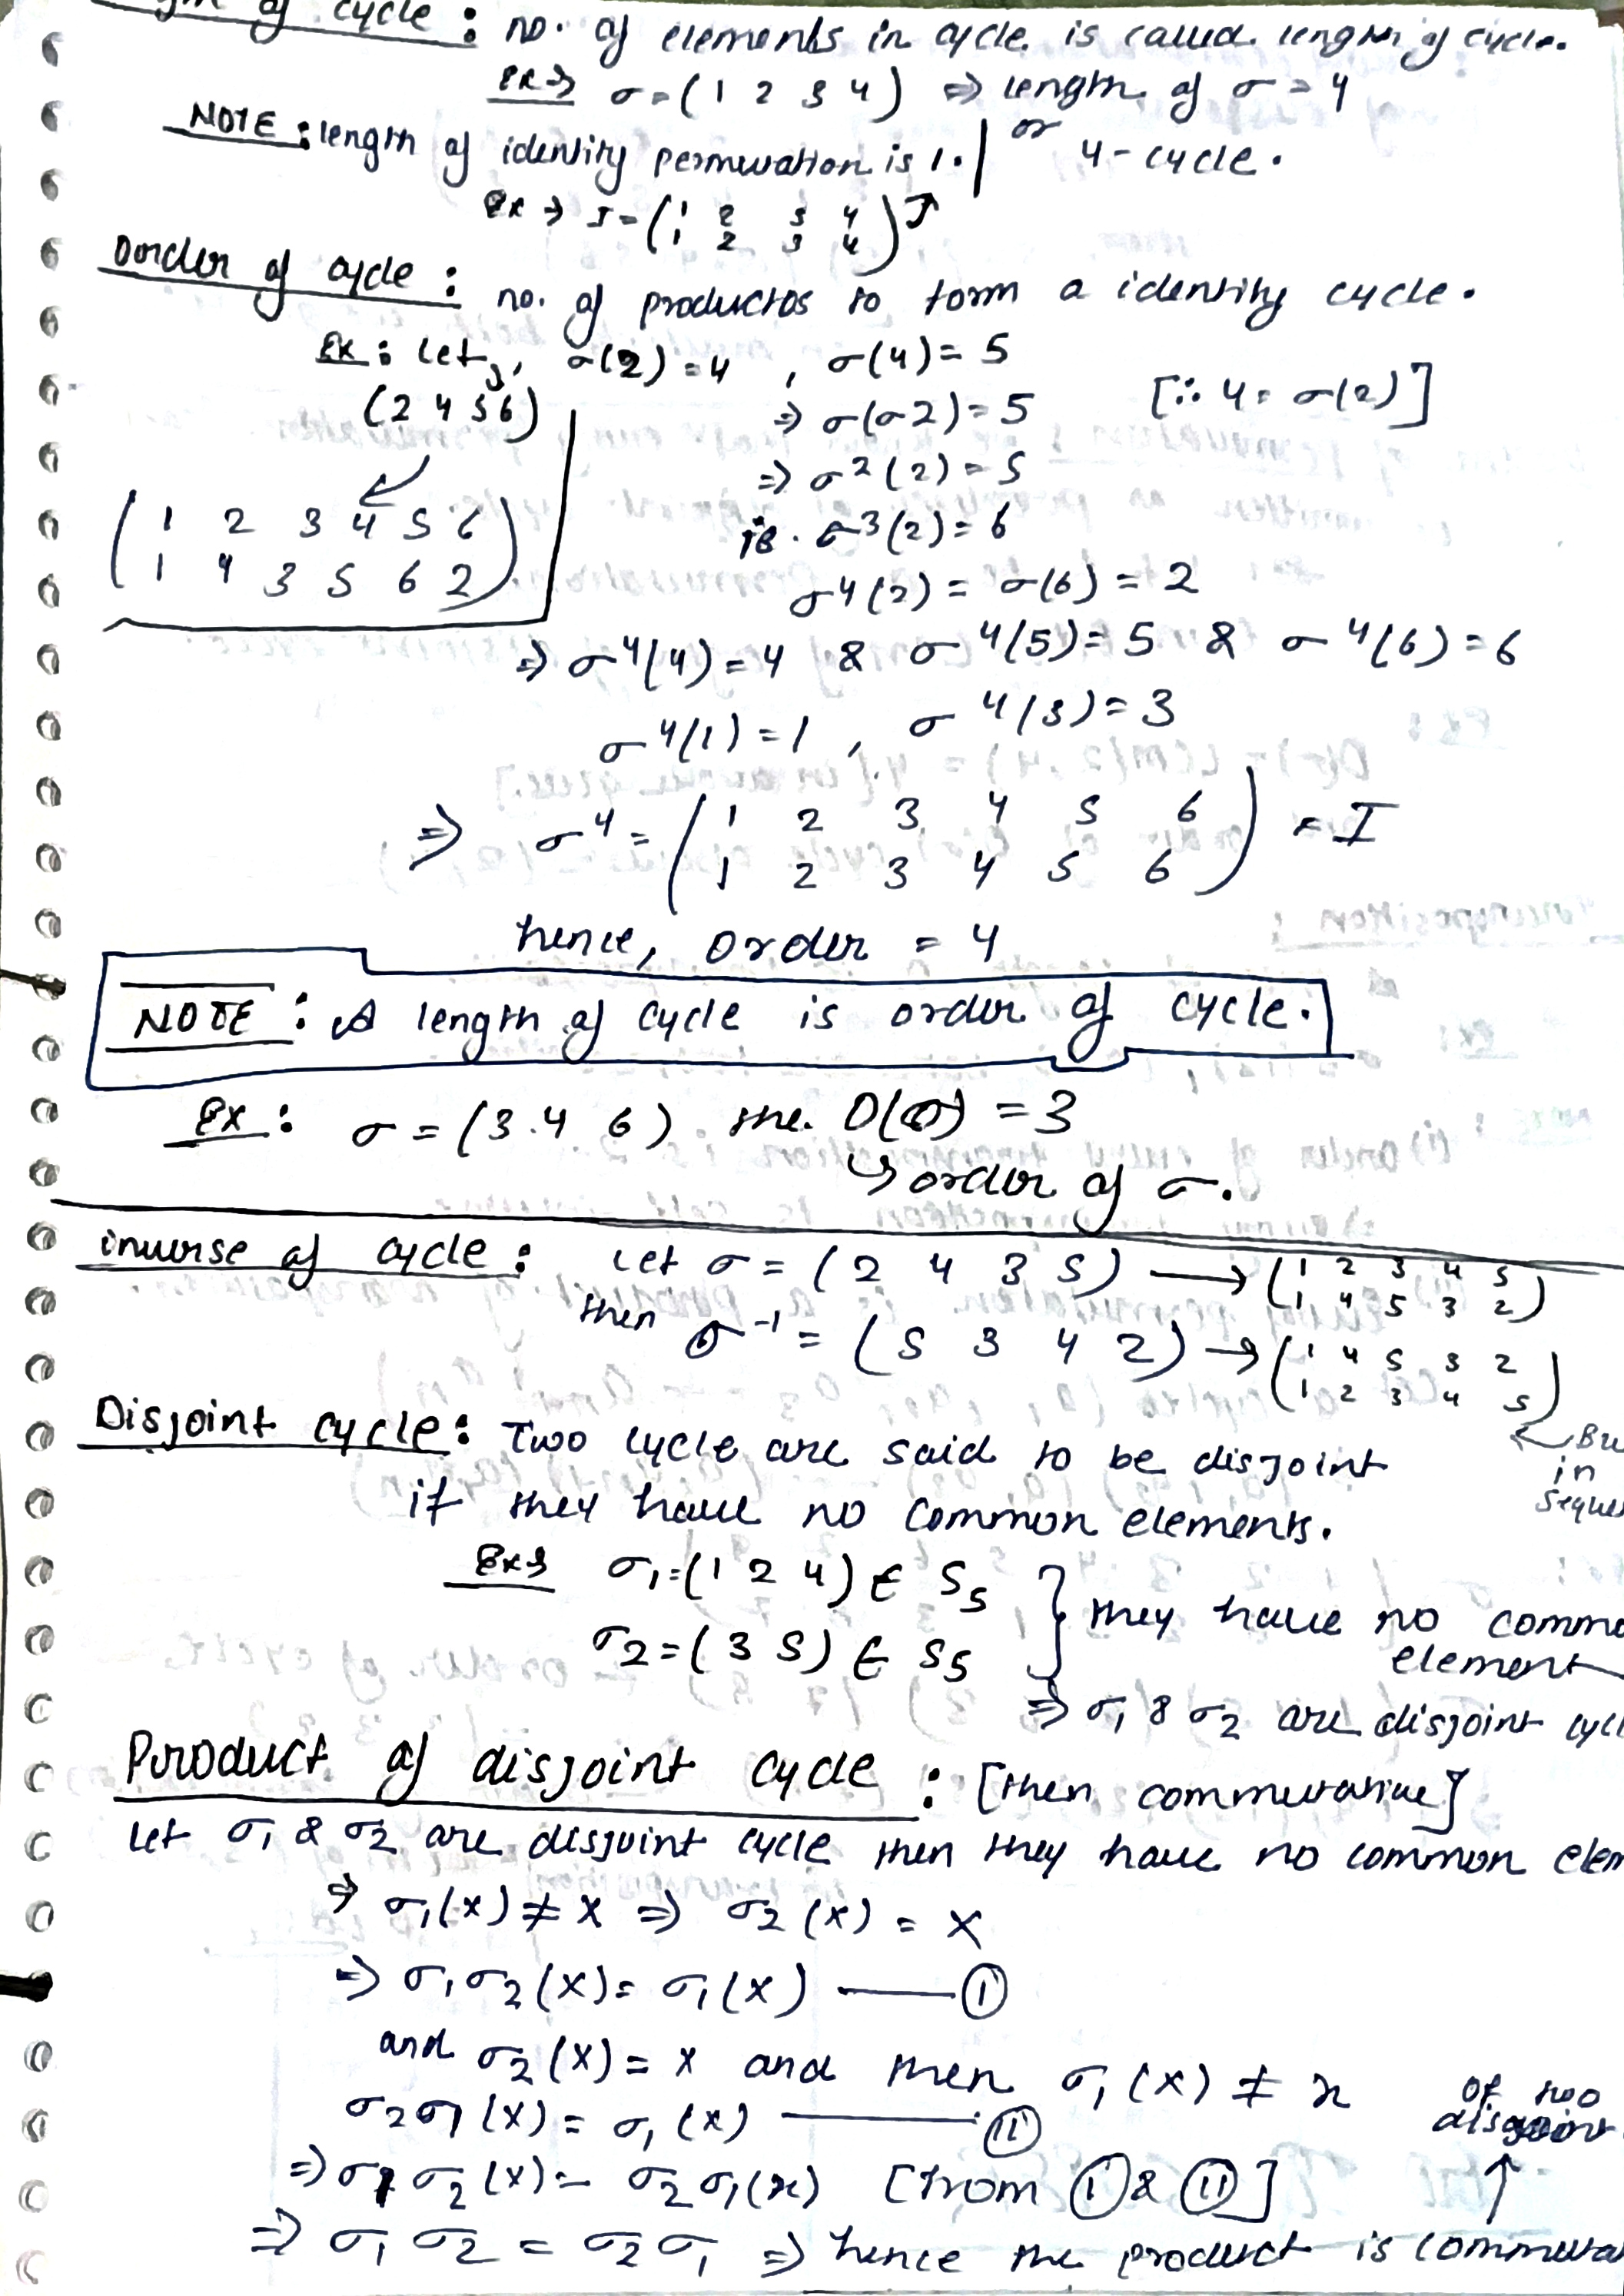 of cycle : no. of elements in cycle is called length of cycle.
Ex → σ = (1 2 3 4) ⇒ length of σ = 4
NOTE : length of identity permutation is 1. | or 4-cycle.
Ex → I = (1 2 3 4 / 1 2 3 4)
Oorder of cycle : no. of productos to form a identity cycle.
Ex : let, σ(2) = 4 , σ(4) = 5
(2 4 5 6) ⇒ σ(σ2) = 5 [∵ 4 = σ(2)]
⇒ σ²(2) = 5
(1 2 3 4 5 6 / 1 4 3 5 6 2) ie. σ³(2) = 6
σ⁴(2) = σ(6) = 2
⇒ σ⁴(4) = 4 & σ⁴(5) = 5 & σ⁴(6) = 6
σ⁴(1) = 1 , σ⁴(3) = 3
⇒ σ⁴ = (1 2 3 4 5 6 / 1 2 3 4 5 6) = I
hence, order = 4
NOTE : A length of cycle is order of cycle.
Ex : σ = (3 4 6) the. O(σ) = 3
↳ order of σ.
inverse of cycle : Let σ = (2 4 3 5) → (1 2 3 4 5 / 1 4 5 3 2)
then σ⁻¹ = (5 3 4 2) → (1 4 5 3 2 / 1 2 3 4 5)
in
Disjoint cycle : Two cycle are said to be disjoint
if they have no common elements.
Ex → σ₁ = (1 2 4) ∈ S₅ } they have no
σ₂ = (3 5) ∈ S₅ element
⇒ σ₁ & σ₂ are disjoint
Product of disjoint cycle : [then commutative]
Let σ₁ & σ₂ are disjoint cycle then they have no common
⇒ σ₁(x) ≠ x ⇒ σ₂(x) = x
⇒ σ₁σ₂(x) = σ₁(x) —— (I)
and σ₂(x) = x and then σ₁(x) ≠ x
σ₂σ₁(x) = σ₁(x) —— (II)
⇒ σ₁σ₂(x) = σ₂σ₁(x) [from (I) & (II)]
of two
disjoint
↑
⇒ σ₁σ₂ = σ₂σ₁ ⇒ hence the product is